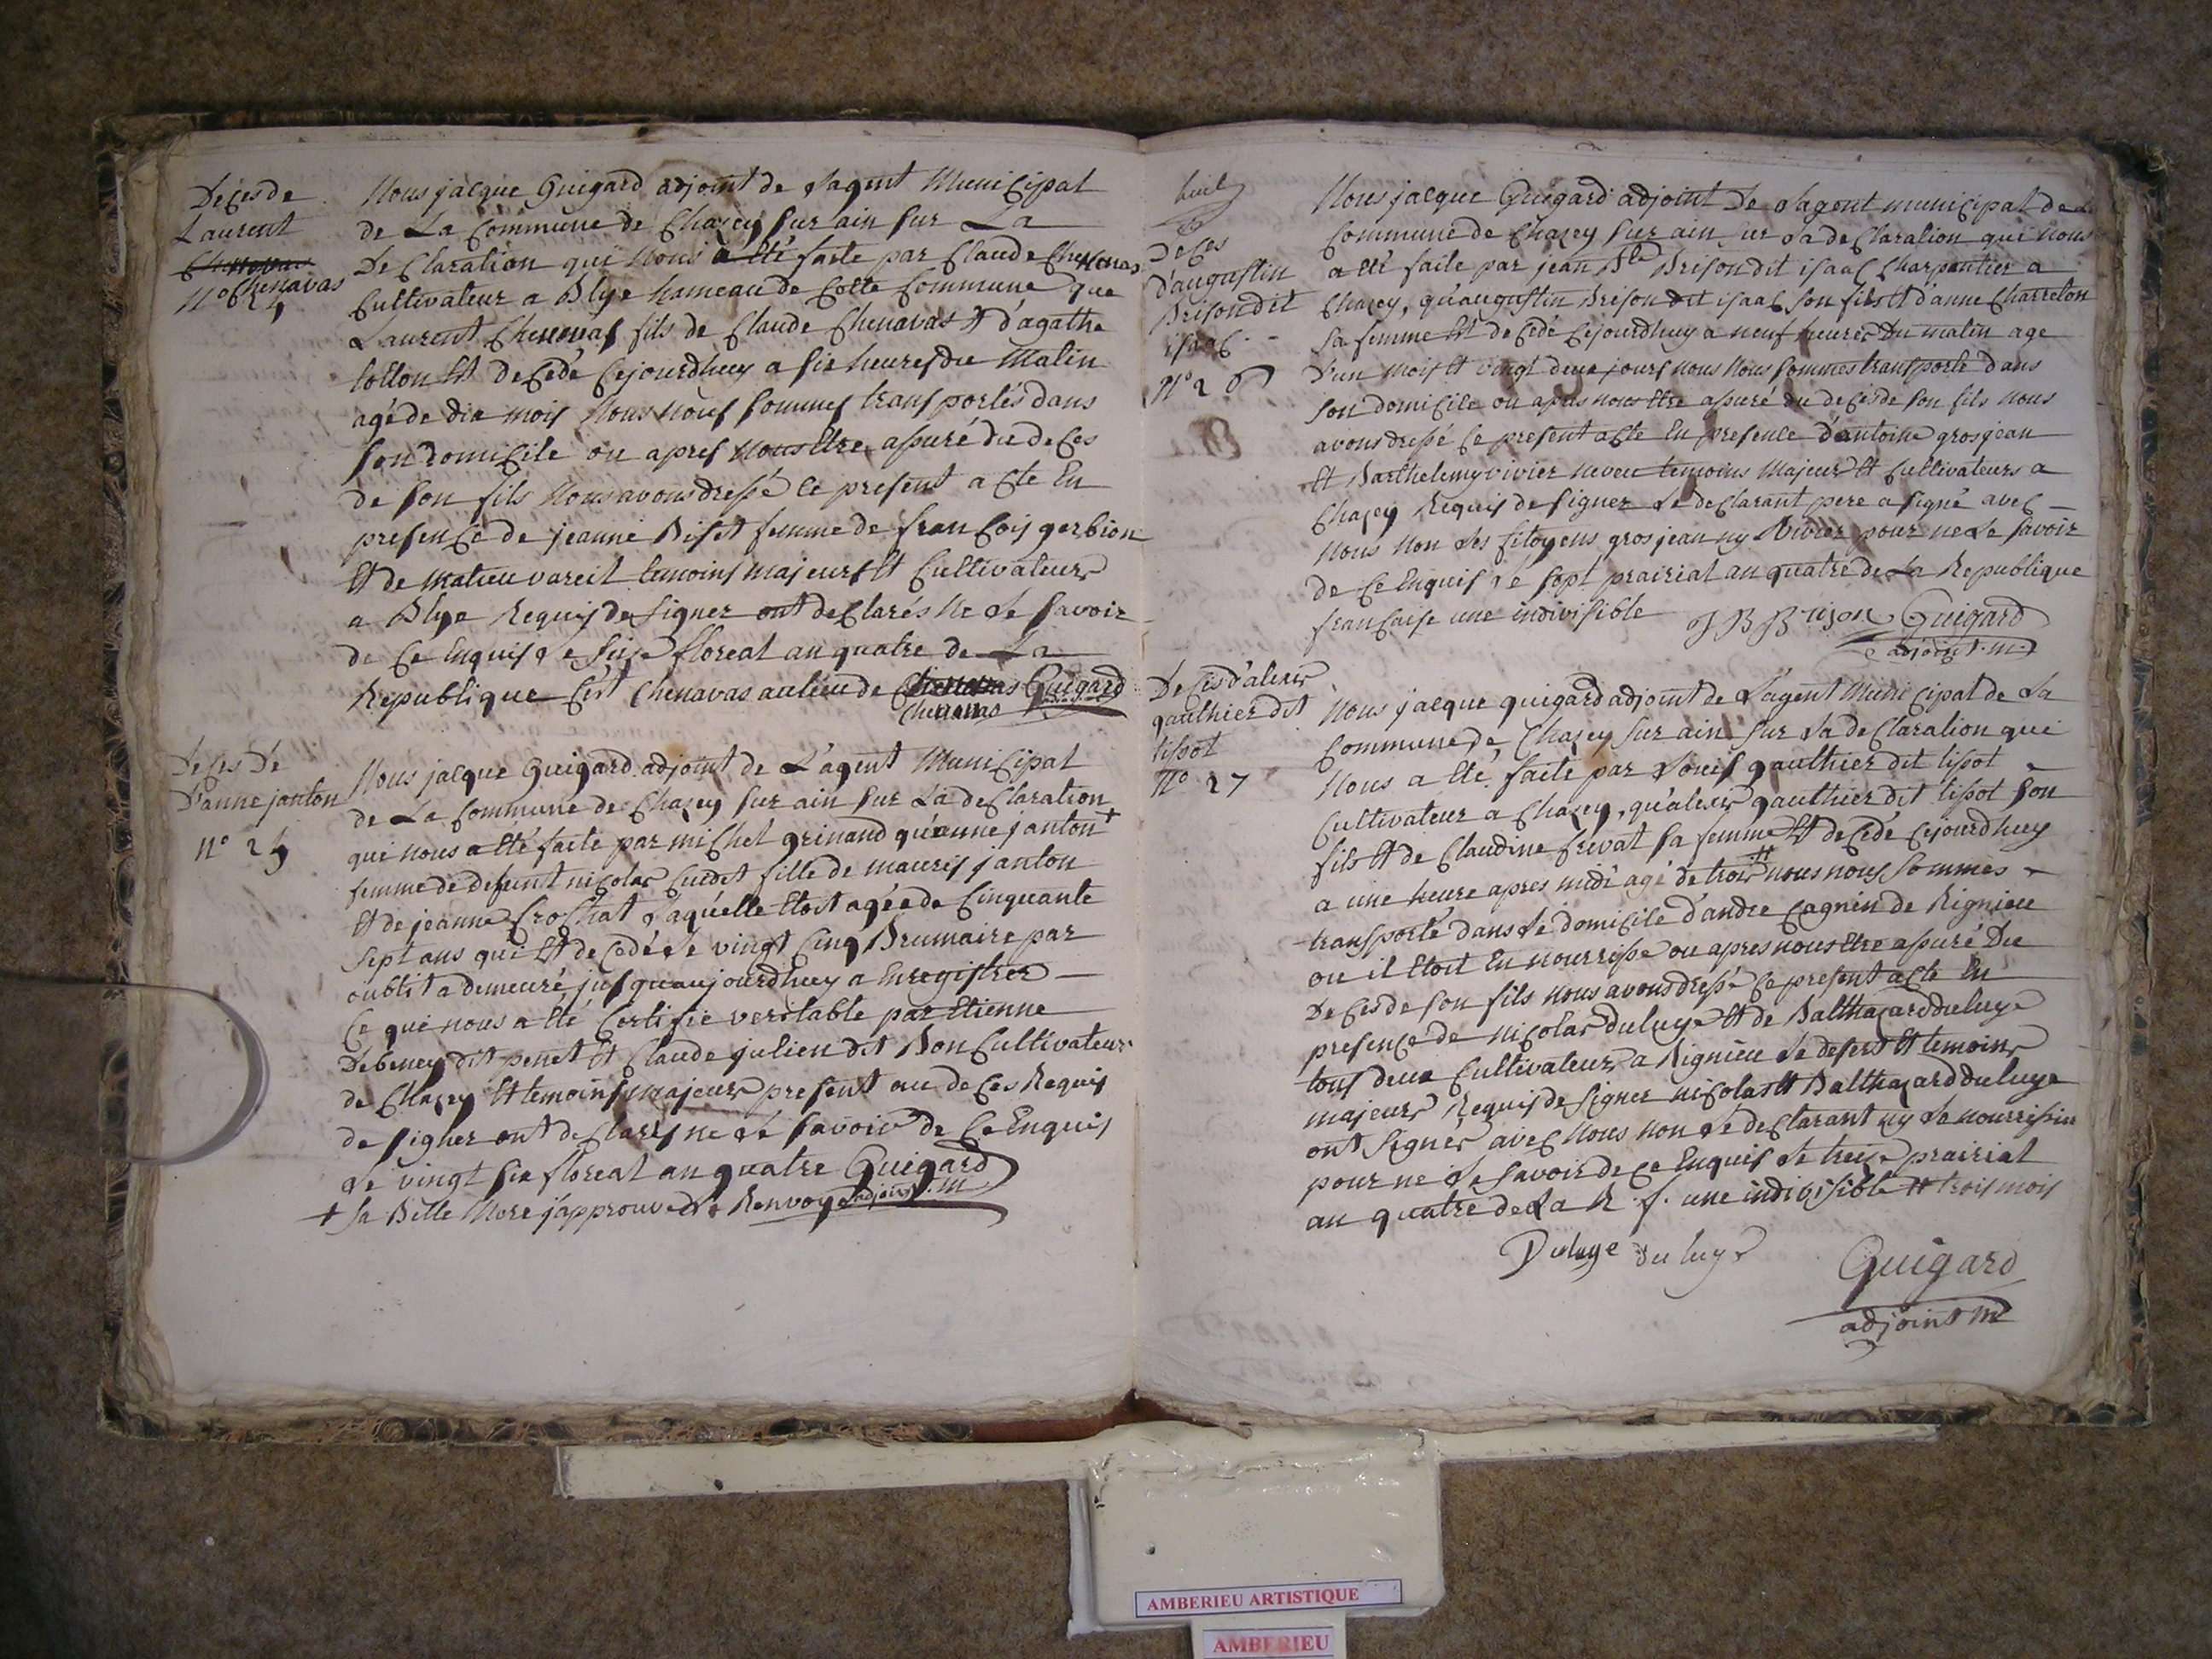 Deces de
Laurent
Chenavas
N° 24
Nous jacque Guigard adjoint de Lagent Municipal
de La Commune de Chazey sur ain sur La
Declaration qui Nous a été faite par Claude Chenavas
Cultivateur a Blye hameau de Cette Commune que
Laurent Chenavas fils de Claude Chenavas et d'agathe
Cotton est decedé Cejourdhuy a six heures du Matin
agé de dix mois Nous Nous sommes transportés dans
son domicile ou apres Nous Etre assuré du deces
de son fils Nous avons dressé ce present acte En
presence de jeanne Biset femme de francois gerbion
Et de matieu vareil temoins majeurs Et Cultivateurs
a Blye Requis de signer ont declarés Ne Le savoir
de Ce Enquis Le seize floreal an quatre de La
Republique C'est Chenavas au lieu de Guigard
Chenavas
Deces De
D'anne janton
n° 25
Nous jacque Guigard adjoint de L'agent Municipal
de La Commune de Chazey sur ain sur La declaration
qui nous a été faite par michel grinand qu'anne janton +
femme de defunt nicolas Cudet fille de mauris janton
Et de jeanne Crochat Laquelle Etoit agée de Cinquante
sept ans qui Est decedé Le vingt Cinq Brumaire par
oublit a demeuré jusquaujourdhuy a Enregistrer
Ce qui nous a été Certifié veritable par Etienne
Debeney dit penet Et Claude julien dit Bon Cultivateurs
de Chazey Et temoins majeurs present au deces Requis
de signer ont declarés ne Le savoir de Ce Enquis
Le vingt six floreal an quatre Guigard
adjoint. m.
+ sa Belle Mere j'approuve Le Renvoye
huit
Deces
d'augustin
Brison dit
isaac
N° 26
Nous jacque Guigard adjoint De Lagent municipal de La
Commune de Chazey sur ain sur La declaration qui Nous
a été faite par jean Bte Brison dit isaac Charpentier a
Chazey, qu'augustin Brison dit isaac son fils Et d'anne Charreton
sa femme Est decedé Cejourdhuy a neuf heures du matin age
D'un mois Et vingt deux jours nous Nous sommes transporte dans
son domicile ou apres nous Etre assuré du deces de son fils Nous
avons dressé Ce present acte En presence d'antoine grosjean
Et Barthelemy vivier neveu temoins Majeurs Et Cultivateurs a
Chazey Requis de signer Le declarant pere a signé avec
Nous Non Les Citoyens grosjean ny Vivier pour ne Le savoir
de Ce Enquis Le sept prairial an quatre de La Republique
francaise une indivisible J B Brison Guigard
adjoint. m.
Deces d'alexis
gaulthier dit
tissot
N° 27
Nous jacque guigard adjoint de L'agent Municipal de La
Commune de Chazey sur ain sur La declaration qui
Nous a été faite par Louis gaulthier dit tissot
Cultivateur a Chazey, qu'alexis gaulthier dit tissot son
fils Et de Claudine frivat sa femme Est decedé Cejourdhuy
a une heure apres midi agé de trois # nous nous sommes
transporté dans Le domicile d'andre Cagnin de Rignieu
ou il Etoit En nourrisse ou apres nous Etre assuré Du
Deces de son fils Nous avons dressé Ce present acte En
presence de nicolas duluye Et de Balthazard duluye
tous deux Cultivateurs a Rignieu Le desert Et temoins
majeurs Requis de signer nicolas Et Balthazard duluye
ont signés avec Nous Non Le declarant ny Le nourrissier
pour ne Le savoir de Ce Enquis Le treize prairial
an quatre de La R. f. une indivisible # trois mois
Duluye duluye
Guigard
adjoint m
AMBERIEU ARTISTIQUE
AMBERIEU